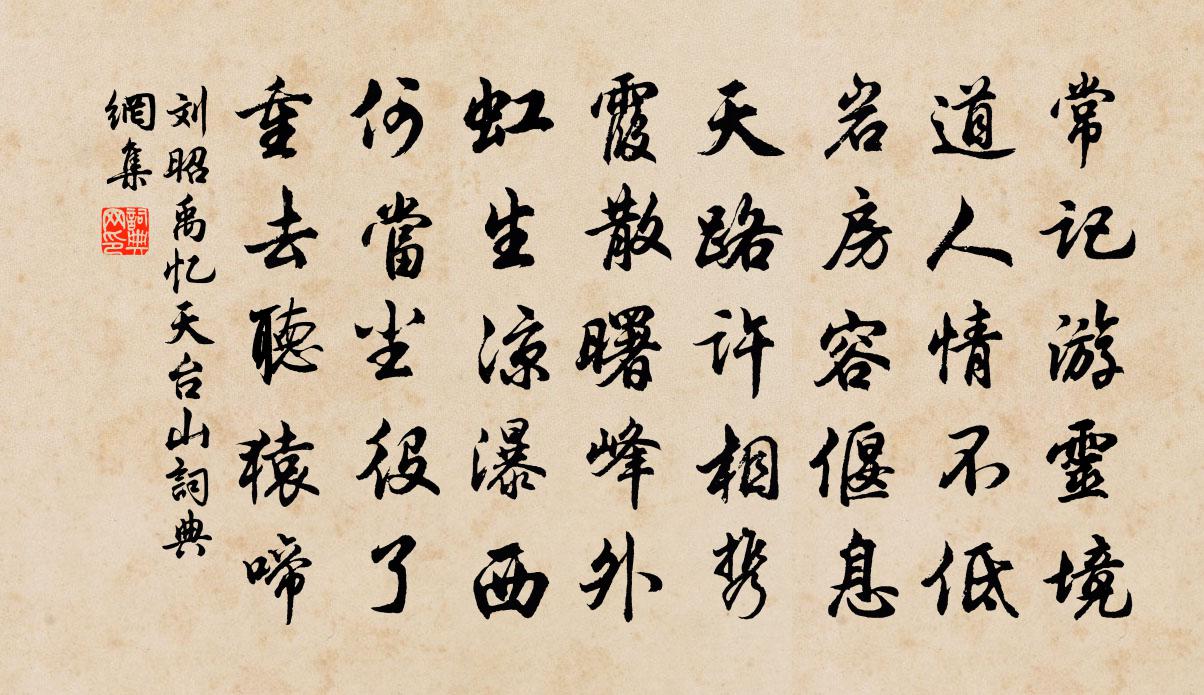 常记游靈境
道人情不低
岩房容偃息
天路许相携
霞散曙峰外
虹生涼瀑西
何當尘役了
重去聽猿啼
刘昭禹忆天台山詞典
網集
詞典
网印